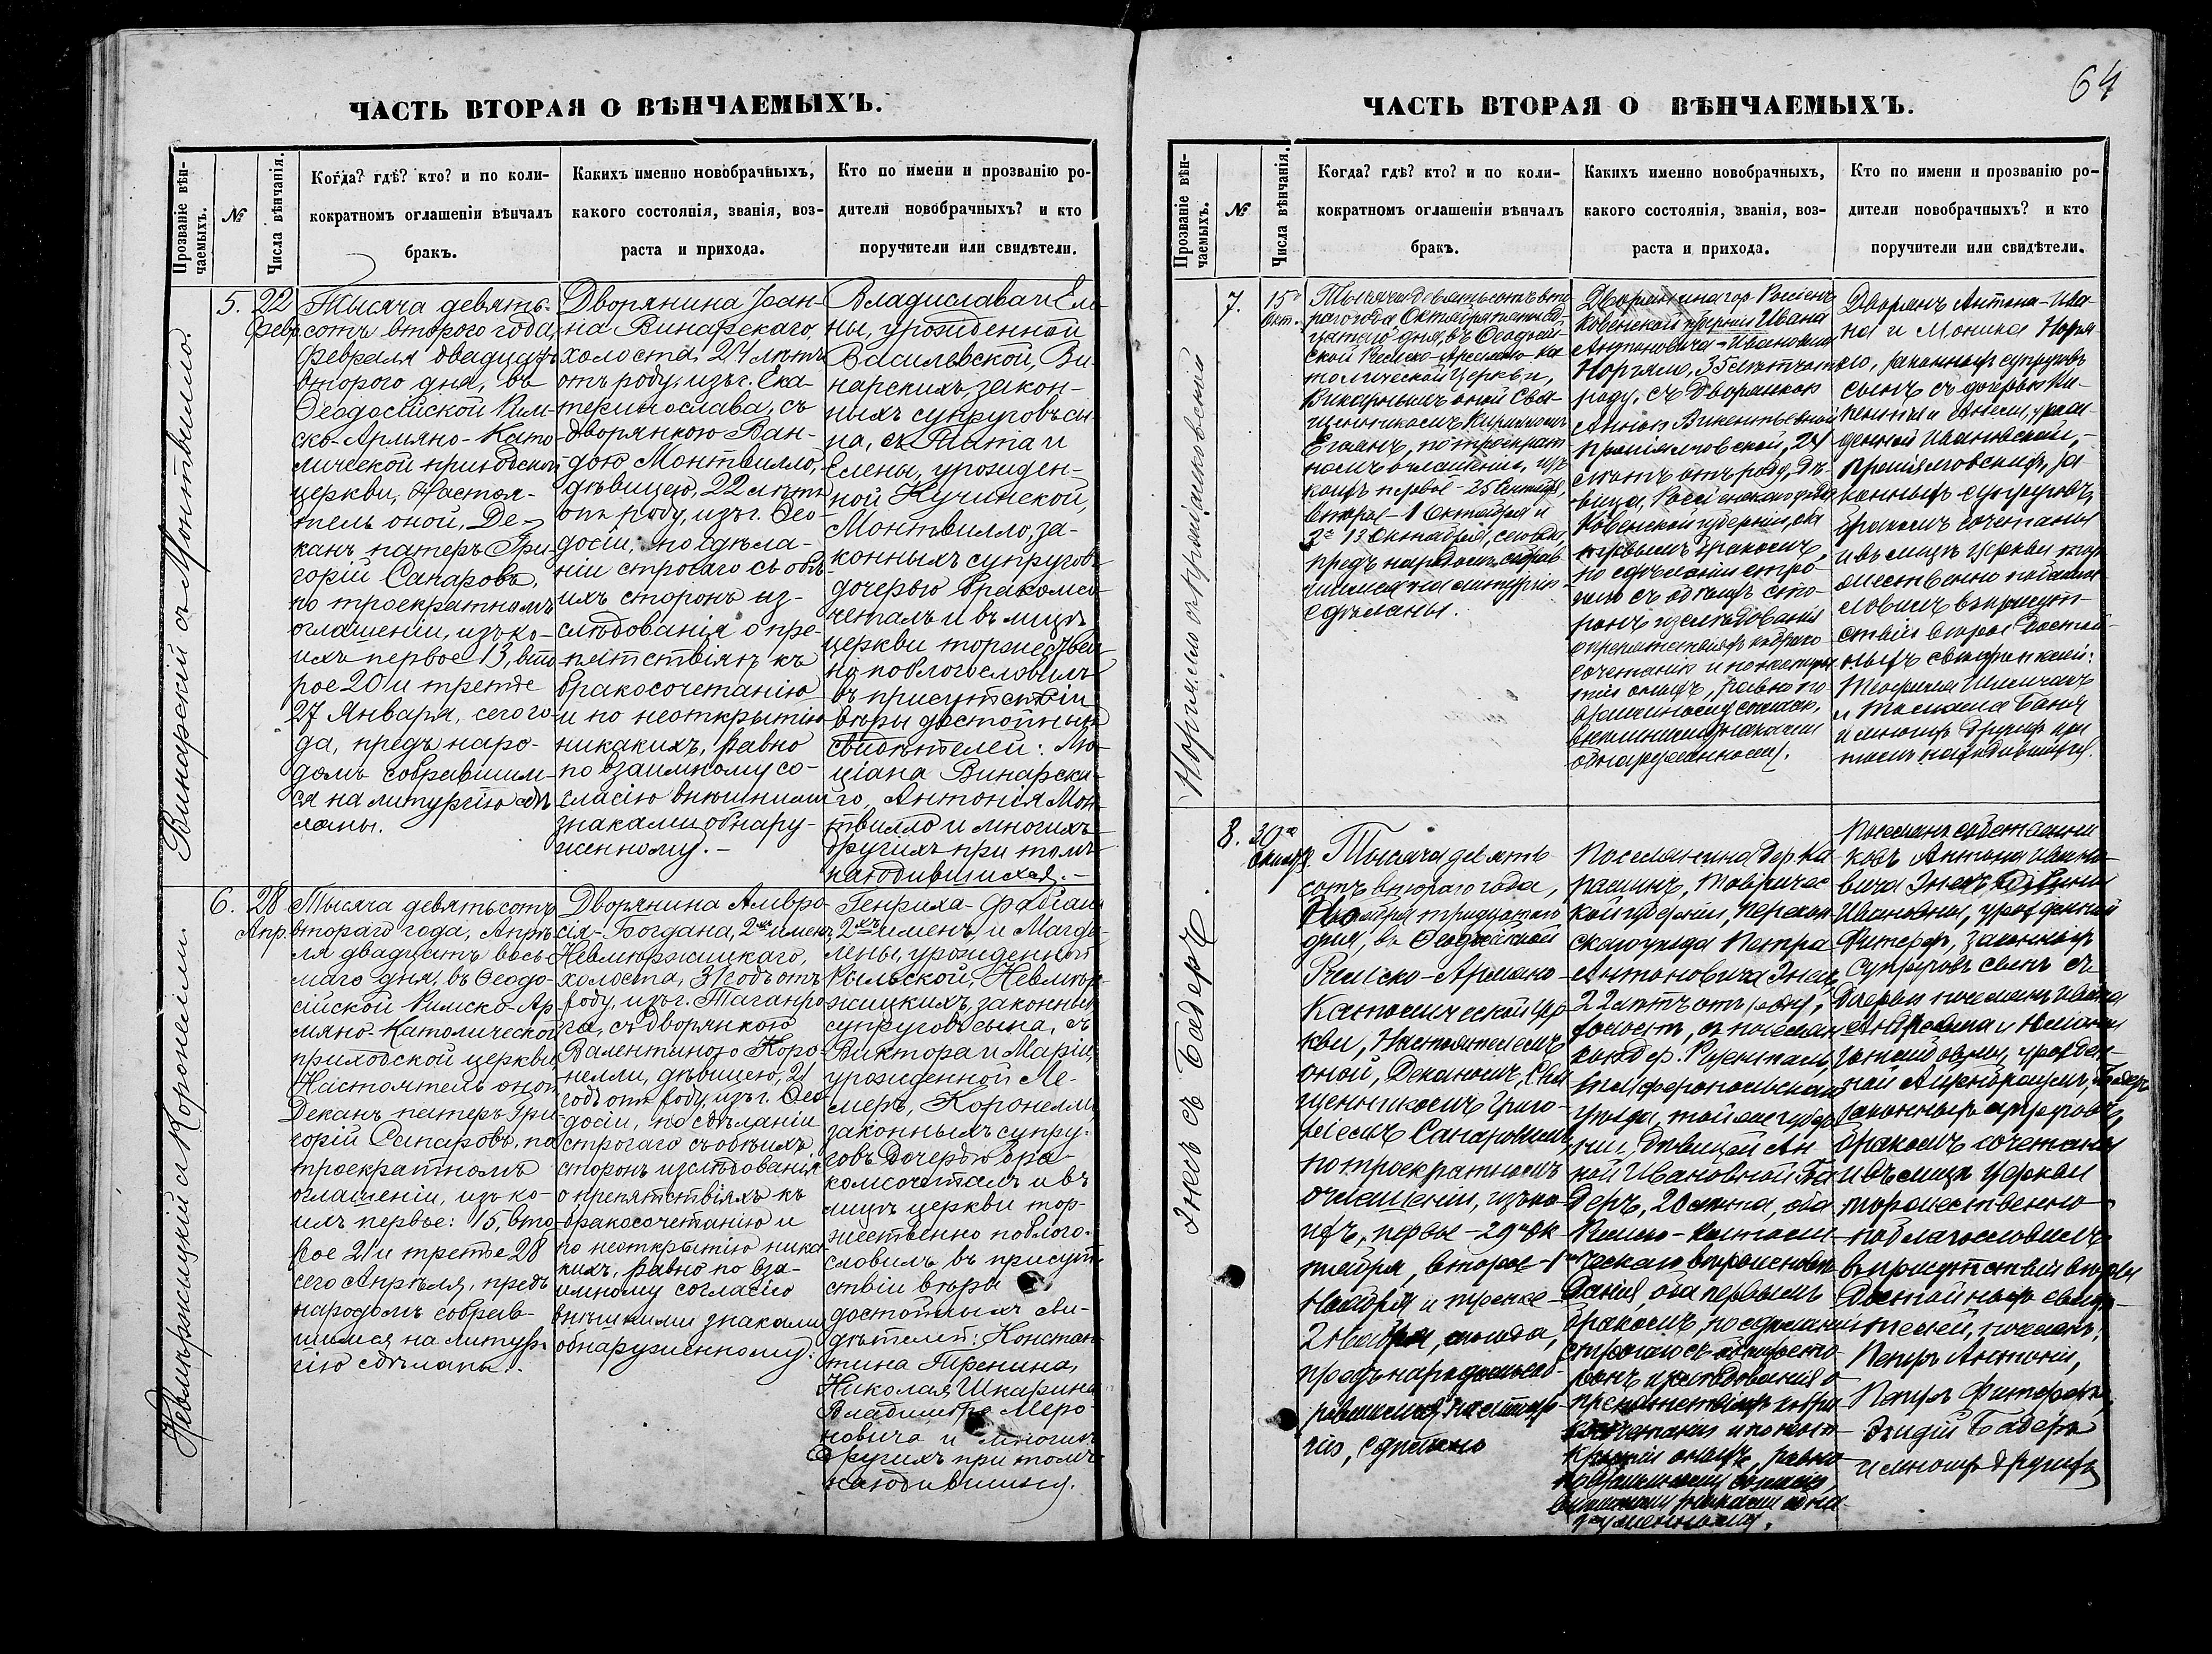 ЧАСТЬ ВТОРАЯ О ВѢНЧАЕМЫХЪ.
Прозваніе вѣн-
чаемыхъ.
№
Числа вѣнчанія.
Когда? гдѣ? кто? и по коли-
кократномъ оглашеніи вѣнчалъ
бракъ.
Какихъ именно новобрачныхъ,
какого состоянія, званія, воз-
раста и прихода.
Кто по имени и прозванію ро-
дители новобрачныхъ? и кто
поручители или свидѣтели.
Винарскій съ Монтвилло.
5.
22
Февр.
Тысяча девять-
сотъ второго года,
Февраля двадцать
второго дня, въ
Ѳеодосійской Рим-
ско-Армяно-Като
лической приходской
церкви, Настоя-
тель оной, Де-
канъ патеръ Гри-
горій Сапаровъ,
по троекратномъ
оглашеніи, изъ ко-
ихъ первое 13, вто
рое 20 и третье
27 Января, сего го-
да, предъ наро-
домъ собравшим-
ся на литургію сдѣ
ланы.
Дворянина Іоан-
на Винарскаго,
холоста, 24 лѣтъ
отъ роду, изъ г. Ека-
теринослава, съ
дворянкою Ван-
дою Монтвилло,
дѣвицею, 22 лѣтъ
отъ роду, изъ г. Ѳео
досіи, по сдѣла-
ніи строгаго съ обѣ
ихъ сторонъ из-
слѣдованія о пре-
пятствіяхъ къ
бракосочетанію
и по неоткрытію
никакихъ, равно
по взаимному со-
гласію внѣшними
знаками обнару-
женному.-
Владислава и Еле
ны, урожденной
Василевской, Ви-
нарскихъ, закон-
ныхъ супруговъ сы
на, съ
Елены, урожден-
ной Кучинской,
Монтвилло, за-
конныхъ супруговъ
дочерью бракомсо
четалъ и въ лицѣ
церкви торжествен
но поблогословилъ
въ присутствіи
вѣры достойныхъ
свидѣтелей: Лю-
ціана Винарска-
го, Антонія Мон
твилло и многихъ
другихъ при томъ
находившихся.-
Невмѣржицкій съ Коронелли.
6.
28
Апр.
Тысяча девятьсотъ
втораго года, Апрѣ
ля двадцать вось-
маго дня, въ Ѳеодо-
сійской Римско-Ар
мяно-Католической
приходской церкви
Настоятель оной
Деканъ патеръ Гри
горій Сапаровъ, по
троекратномъ
оглашеніи, изъ ко-
ихъ первое: 15, вто
рое 21 и третье 28
сего Апрѣля, предъ
народомъ собрав-
шимся на литур-
гію сдѣланы.
Дворянина Амвро
сія-Богдана, 2хъ именъ,
Невмержицкаго,
холоста, 31 годъ отъ
роду, изъ г. Таганро
га, съ дворянкою
Валентиною Коро-
нелли, дѣвицею, 21
годъ отъ роду, изъ г. Ѳео
досіи, по сдѣланіи
строгаго съ обѣихъ
сторонъ изслѣдованія
о препятствіяхъ къ
бракосочетанію и
по неоткрытію ника
кихъ, равно по вза-
имному согласію
внѣшними знаками
обнаруженному:
Генриха-Фабіана
2хъ именъ, и Магда-
лены, урожденной
Невмер-
жицкихъ, законныхъ
супруговъ сына, съ
Виктора и Маріи,
урожденной Ле-
меръ, Коронелли
законныхъ супру-
говъ дочерью бра-
комсочеталъ и въ
лицѣ церкви тор-
жественно поблого-
словилъ въ присут-
ствіи вѣры
достойныхъ сви-
дѣтелей: Констан
тина Тренина,
Николая Шкарина
Владимира Меро-
новича и многихъ
другихъ при томъ
находившихся.
64
ЧАСТЬ ВТОРАЯ О ВѢНЧАЕМЫХЪ.
Прозваніе вѣн-
чаемыхъ.
№
Числа вѣнчанія.
Когда? гдѣ? кто? и по коли-
кократномъ оглашеніи вѣнчалъ
бракъ.
Какихъ именно новобрачныхъ,
какого состоянія, званія, воз-
раста и прихода.
Кто по имени и прозванію ро-
дители новобрачныхъ? и кто
поручители или свидѣтели.
7.
15го
Окт.
Тысяча девятьсотъ вто
раго года Октября пятнад-
цатаго дня, въ Ѳеодосій-
ской Римско-Армяно-Ка
толической Церкви,
Викарнымъ оной Свя-
щенникомъ
по троекрат
номъ оглашеніи, изъ
коихъ первое - 25 Сентября,
второе - 1 Октября и
3е 13 Октября, сего года,
предъ народомъ собрав
шимся на литургію
сдѣланы.
Дворянина гор. Россіенъ
Ковенской губерніи Ивана
Антоновича-Иванова
35 лѣтъ отъ
роду, съ Дворянкою
Анною Викентьевной
24
лѣтъ отъ роду, дѣ-
вица, Россіенскаго уѣзда
Ковенской губерніи, оба
первымъ бракомъ,
по сдѣланіи стро
гаго съ обѣихъ сто-
ронъ изслѣдованія
о препятствіяхъ къ брако
сочетанію и по неоткры
тіи оныхъ, равно по
взаимному согласію,
внѣшними знаками
обнаруженному.
Дворянъ Антона-Ива
на и Моники
законныхъ супруговъ
сынъ съ дочерью Ви-
кентія и Анели, урож-
денной Ивановской,-
за-
конныхъ супруговъ,
бракомъ сочеталъ
и въ лицѣ церкви тор
жественно поблагос
ловилъ въ присут-
ствіи вѣры достой-
ныхъ свидѣтелей:
и Томаша
и многихъ другихъ при
томъ находившихся.
съ Бадеръ.
8.
30го
Октября
Тысяча девять
сотъ втораго года,
Октября тридцатаго
дня, въ Ѳеодосійской
Римско-Армяно-
Католической Цер
кви, Настоятелемъ
оной, Деканомъ, Свя
щенникомъ Григо-
ріемъ Сапаровымъ
по троекратномъ
оглашеніи, изъ ко-
ихъ, первое - 29го Ок
тября, второе - 1го
Ноября и третье
2 Ноября, сего года,
предъ народомъ соб-
равшимся на литур
гію, сдѣлано
Поселянина дер. Ка
Тавричес
кой губерніи, Перекоп
скаго уѣзда Петра
Антоновича
22 лѣтъ отъ роду,
холостъ, съ поселян
кою дер. Розенталь,
Симферопольскаго
уѣзда, той же губер
ніи, дѣвицей Ан
ной Ивановной Ба
деръ, 20 лѣтъ, оба
Римско-Католи
ческаго вѣроисповѣ
данія, оба первымъ
бракомъ, по сдѣланіи
строгаго съ обѣихъ сто
ронъ изслѣдованія о
препятствіяхъ къ бра
косочетанію и по неот
крытіи оныхъ, равно
по взаимному согласію,
внѣшними знаками обна
руженному.
Поселянъ собственни
ковъ Антона Ивано-
вича
Ивановны, урожденной
законныхъ
супруговъ сынъ съ
дочерью поселянъ Ивана
урожден-
ной Бадеръ
законныхъ супруговъ,
бракомъ сочеталъ
и въ лицѣ церкви
торжественно
поблагословилъ
въ присутствіи вѣры
достойныхъ свидѣ-
телей, поселянъ:
Петръ Антоній,
Бадеръ
и многихъ другихъ